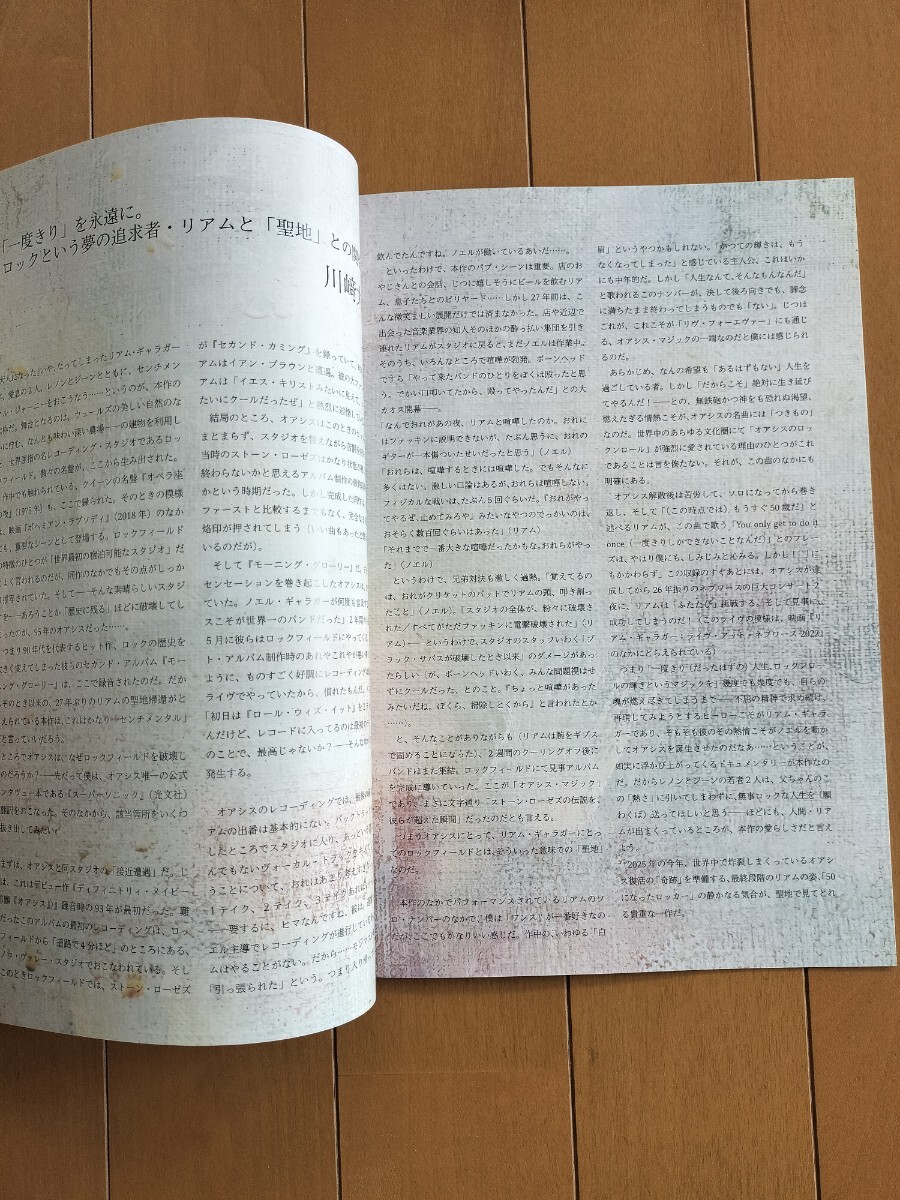 「一度きり」を永遠に。
ロックという夢の追求者・リアムと「聖地」との
川﨑
大人になった
なってしまったリアム・ギャラガー
、愛息の2人、レノンとジーンとともに、センチメン
ル・ジャーニーをおこなう……というのが、本作の
舞台となるのは、ウェールズの美しい自然のな
に佇む、なんとも味わい深い農場――の建物を利用し
世界屈指の名レコーディング・スタジオであるロッ
フィールド。数々の名盤が、ここから生み出された。
作中でも触れられている、クイーンの名盤『オペラ座
(1975年)も、ここで録られた。そのときの模様
、映画『ボヘミアン・ラプソディ』(2018年)のなか
も、重要なシーンとして登場する。ロックフィールド
の特徴のひとつが「世界最初の宿泊可能なスタジオ」だ
とよく言われるのだが、同作のなかでもその点がしっか
描写されていた。そして――そんな素晴らしいスタジ
を――あろうことか「歴史に残る」ほどに破壊してし
ったのが、95年のオアシスだった……。
つまり90年代を代表するヒット作、ロックの歴史を
大きく変えてしまった彼らのセカンド・アルバム『モー
ング・グローリー』は、ここで録音されたのだ。だか
そのとき以来の、27年ぶりのリアムの聖地帰還がと
えられている本作は、これはかなり「センチメンタル」
と言っていいだろう。
ところでオアシスは、なぜロックフィールドを破壊し
のだろうか?――先だって僕は、オアシス唯一の公式
ンタヴュー本である『スーパーソニック』(光文社)
翻訳をおこなった。そのなかから、該当箇所をいくつ
抜き出してみたい。
まずは、オアシスと同スタジオの「接近遭遇」だ。じ
は、これは前デビュー作『ディフィニトリィ・メイビー
邦題『オアシス』)録音時の93年が最初だった。難
だったこのアルバムの最初のレコーディングは、ロッ
フィールドから「道路で4分ほど」のところにある、
ノウ・ヴァレー・スタジオでおこなわれている。そし
このときロックフィールドでは、ストーン・ローゼズ
が『セカンド・カミング』を録っていて、
アムはイアン・ブラウンと遭遇。
アムは「イエス・キリストみたいに見えて、
たいにクールだったぜ」と
結局のところ、オアシスはこのときの
まとまらず、スタジオを替えながら
当時のストーン・ローゼズはかなり
終わらないかと思えるアルバム制作の
かという時期だった。しかし完成した
ファーストと比較するまでもなく、
烙印が押されてしまう(いい曲もあった
いるのだが)。
そして『モーニング・グローリー』だ。
センセーションを巻き起こしたオアシスは、
ていた。ノエル・ギャラガーが何度も
スこそが世界一のバンドだった」
5月に彼らはロックフィールドにやってくる
ト・アルバム制作時のあれやこれやが
ように、ものすごく好調にレコーディング
ライヴでやっていたから、慣れたもんだ
「初日は『ロール・ウィズ・イット』を
んだけど、レコードに入ってるのは最初
のことで、最高じゃないか?――そんな
発生する。
オアシスのレコーディングでは、
アムの出番は基本的にない。バック
したところでスタジオに入り、あっという
んでもないヴォーカル・トラックを
うことについて、おれはあまり
1テイク、2テイク、3テイク
――要するに、ヒマなんですね、彼は。
エル主導でレコーディングが進行していて
ムはやることがない。だから……
「引っ張られた」という。つまり
飲んでたんですね。ノエルが働いているあいだ……。
といったわけで、本作のパブ・シーンは重要。店のお
やじさんとの会話、じつに嬉しそうにビールを飲むリア
ム、息子たちとのビリヤード……しかし27年前は、こ
んな微笑ましい展開だけでは済まなかった。店や近辺で
出会った音楽業界の知人そのほかの酔っ払い集団を引き
連れたリアムがスタジオに戻ると、まだノエルは作業中。
そのうち、いろんなところで喧嘩が勃発。ボーンヘッド
でする「やって来たバンドのひとりをぼくは殴ったと思
う。でかい口叩いてたから、殴ってやったんだ」との大
カオス開幕――。
「なんでおれがあの夜、リアムと喧嘩したのか。おれに
はファッキンに説明できないが、たぶん思うに、おれの
ギターが一本傷ついたせいだったと思う」(ノエル)
「おれらは、喧嘩するときには喧嘩した。でもそんなに
多くはない。激しい口論はあるが、おれらは喧嘩しない。
フィジカルな戦いは、たぶん5回ぐらいだ。「おれがやっ
てやるぜ、止めてみろや」みたいなやつのでっかいのは、
おそらく数百回ぐらいはあった」(リアム)
「それまでで一番大きな喧嘩だったかもな。おれらがやっ
た」(ノエル)
というわけで、兄弟対決も激しく過熱。「覚えてるの
は、おれがクリケットのバットでリアムの頭、叩き割っ
たこと」(ノエル)、「スタジオの全体が、粉々に破壊され
た/すべてがただファッキンに電撃破壊された」(リ
アム)――というわけで、スタジオのスタッフいわく「ブ
ラック・サバスが破壊したとき以来」のダメージがあっ
たらしい(が、ボーンヘッドいわく、みんな問題視はせ
ずにクールだった、とのこと。「ちょっと喧嘩があった
みたいだね、ぼくら、掃除しとくから」と言われたとか
……)。
と、そんなことがありながらも(リアムは腕をギプス
で固めることになった)、2週間のクーリングオフ後に
バンドはまた集結。ロックフィールドにて見事アルバム
を完成に導いていった。ここが「オアシス・マジック」
であり、まさに文字通り「ストーン・ローゼズの伝説を、
彼らが超えた瞬間」だったのだとも言える。
つまりオアシスにとって、リアム・ギャラガーにとっ
てのロックフィールドとは、そういった意味での「聖地」
なのだ。
本作のなかでパフォーマンスされているリアムのソ
ロ・ナンバーのなかで、僕は「ワンス」が一番好きなの
だが、ここでもかなりいい感じだ。作中の、いわゆる「白
眉」というやつかもしれない。「かつての輝きは、もう
なくなってしまった」と感じている主人公。これはいか
にも中年的だ。しかし「人生なんて、そんなもんなんだ」
と歌われるこのナンバーが、決して後ろ向きでも、諦念
に満ちたまま終わってしまうものでも「ない」。じつは
これが、これこそが「リヴ・フォーエヴァー」にも通じ
る、オアシス・マジックの一端なのだと僕には感じられ
るのだ。
あらかじめ、なんの希望も「あるはずもない」人生を
過ごしている者。しかし「だからこそ」絶対に生き延び
てやるんだ!――との、無鉄砲かつ神をも恐れぬ渇望、
燃えたぎる情熱こそが、オアシスの名曲には「つきもの」
なのだ。世界中のあらゆる文化圏にて「オアシスのロッ
クンロール」が強烈に愛されている理由のひとつがこれ
であることは言を俟たない。それが、この曲のなかにも
明確にある。
オアシス解散後は苦労して、ソロになってから巻き
返し、そして「(この時点では)もうすぐ50歳だ」と
述べるリアムが、この曲で歌う「You only get to do it
once(一度きりしかできないことなんだ)」とのフレー
ズは、やはり僕にも、しみじみと沁みる。しかし!「に
もかかわらず」この収録のすぐあとには、オアシスが達
成してから26年振りのネブワースの巨大コンサート2
夜に、リアムは「ふたたび」挑戦する。そして見事に
成功してしまうのだ!(このライヴの模様は、映画『リ
アム・ギャラガー:ライヴ・アット・ネブワース 2022』
のなかにとらえられている)
つまり「一度きり(だったはずの)人生、ロックンロー
ルの輝きというマジックを」幾度でも幾度でも、自らの
魂が燃え尽きてしまうまで――不屈の精神で求め続け、
再現してみようとするヒーローこそがリアム・ギャラ
ガーであり、そもそも彼のその熱情こそがノエルを動か
してオアシスを誕生させたのだなあ……ということが、
如実に浮かび上がってくるドキュメンタリーが本作なの
だ。だからレノンとジーンの若者2人は、父ちゃんのこ
の「熱さ」に引いてしまわずに、無事ロックな人生を(願
わくば)送ってほしいと思う――ほどにも、人間・リア
ムが出まくっているところが、本作の愛らしさだと言え
よう。
2025年の今年、世界中で炸裂しまくっているオアシ
ス復活の「奇跡」を準備する、最終段階のリアムの姿、「50
になったロッカー」の静かなる気合が、聖地で見てとれ
る貴重な一作だ。